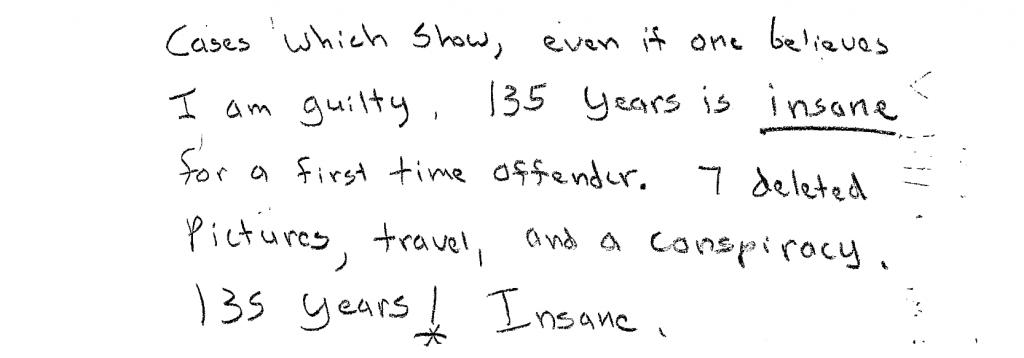 Cases which show, even if one believes
I am guilty, 135 years is insane
for a first time offender. 7 deleted
Pictures, travel, and a conspiracy.
135 years! Insane.